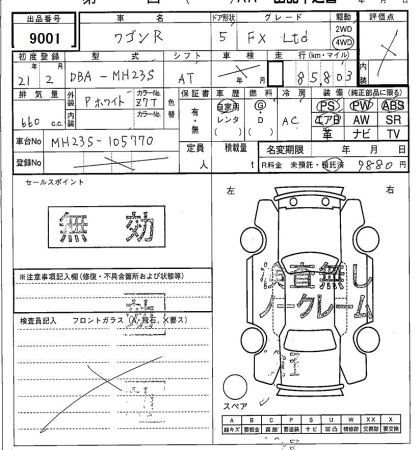 出品番号 車名 ドア形状 グレード 駆動 評価点
9001 ワゴンR 5 FX Ltd 2WD 4WD
初度登録 型式 シフト 車検 走行(km・マイル) 内装
21年 2月 DBA-MH23S AT 年 月 85803
排気量 外装 カラーNo. 色替 保証書 車歴 燃料 冷房 装備(純正部品に限る)
660 c.c. Pホワイト Z7T 有・無 自家用 レンタ ( ) G D ( ) AC PS PW ABS
内装 カラーNo. エアB AW SR
革 ナビ TV
車台No MH23S-105770 定員 人 積載量 t 名変期限 年 月 日
登録No R料金 未預託・預託済 9880円
セールスポイント
無効
左 右
※注意事項記入欄(修復・不具合箇所および状態等)
検査無し
ノークレーム
検査員記入 フロントガラス(A・飛石、×要ス)
スペア
A B C P S U W X XX
線キズ 要板金 腐蝕 要塗装 サビ 凹凸 補修跡 交換跡 要交換